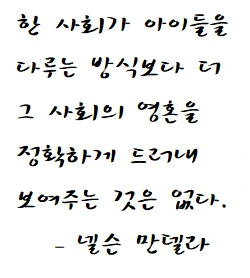 한 사회가 아이들을
다루는 방식보다 더
그 사회의 영혼을
정확하게 드러내
보여주는 것은 없다.
- 넬슨 만델라